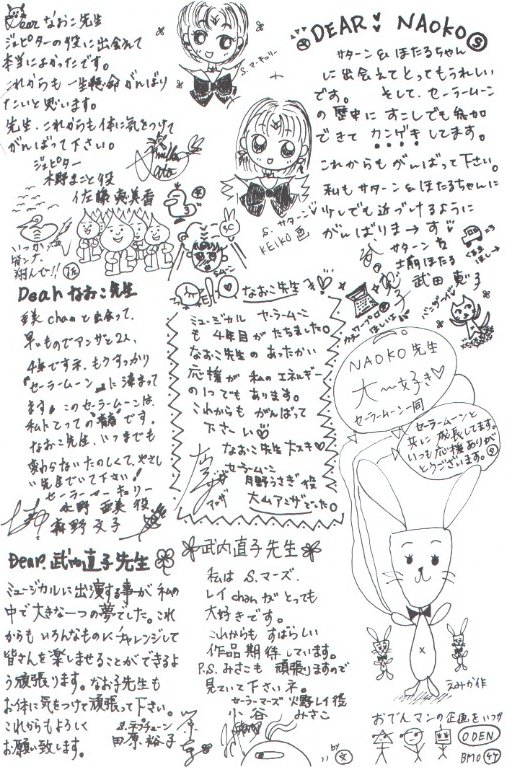 Dear なおこ先生
ジュピターの役に出会えて
本当によかったです。
これからも一生懸命がんばり
たいと思います。
先生、これからも体に気をつけて
がんばって下さい。
ジュピター
木野まこと役
佐藤恵美香
S.マーキュリー
DEAR NAOKO
サターン&ほたるちゃん
に出会えてとってもうれしい
です。そして、セーラームーン
の歴史にすこしでも参加
できてカンゲキしてます。
これからもがんばって下さい。
私もサターン&ほたるちゃんに
少しでも近づけるように
がんばりまーす
サターン&
土萠ほたる
武田恵子
S.サターン
KEIKO 色
いつか
皆ンナで
翔んで!!
Dear なおこ先生
亜美chanと出会って、
早いものでアンザと2人、
4年ですネ。もうすっかり
"セーラームーン"に凄まって
ます。このセーラームーンは、
私にとっての"青春"です。
なおこ先生、いつまでも
変わらないたのしくて、やさし
い先生でいて下さい!
セーラーマーキュリー
水野亜美役
森野文子
なおこ先生
ミュージカル セーラームーン
も4年目がたちました。
なおこ先生のあったかい
応援が私のエネルギー
の1つでもあります。
これからもがんばって
下さい
なおこ先生大スキ
セーラームーン
月野うさぎ役
大山アンザでした。
NAOKO先生
大〜好き
セーラームーン一同
セーラームーンと
共に成長します。
いつも応援ありが
とうございます。
Dear. 武内直子先生
ミュージカルに出演する事が私の
中で大きな一つの夢でした。これ
からもいろんなものにチャレンジして
皆さんを楽しませることができるよ
う頑張ります。なお子先生も
お体に気をつけて頑張って下さい。
これからもよろしく
お願い致します。
S.ネプチューン
田原裕子
武内直子先生
私はS.マーズ、
レイchanがとっても
大好きです。
これからもすばらしい
作品期待しています。
P.S. みさこも頑張りますので
見ていて下さいネ。
セーラーマーズ 火野レイ役
小谷みさこ
えみか作
おでんマンの企画をいつか
ODEN